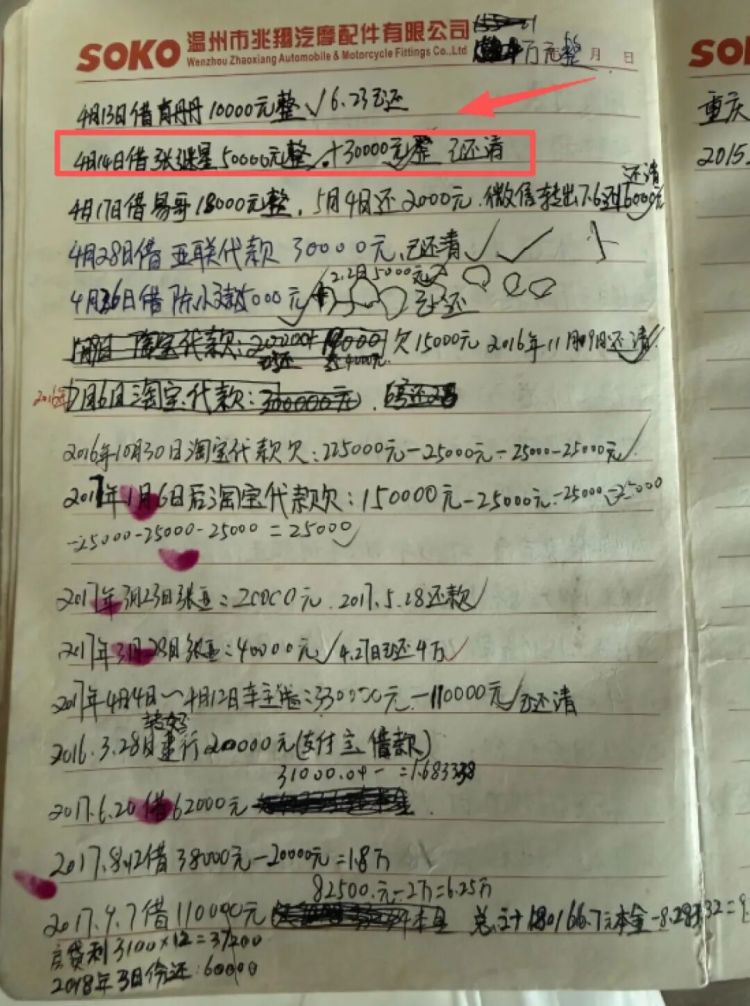 SOKO 温州市兆翔汽摩配件有限公司
Wenzhou Zhaoxiang Automobile & Motorcycle Fittings Co.,Ltd
万元整 月 日
4月13日借肖丹丹10000元整√ 6.23已还
4月14日借张继星50000元整√+30000元整 已还清
4月17日借易哥18000元整,5月4日还2000元.微信转出 还清
4月28日借亚联代款 30000元,已还清√√
2.2月5000元
4月26日借陈小 000元√ 已还
淘宝代款: 欠15000元 2016年11月09日还清√
2016年7月6日淘宝代款:
2016年10月30日淘宝代款欠:225000元-25000元-25000-25000元√
2017年1月6日后淘宝代款欠:150000元-25000元-25000-25000
-25000-25000-25000=25000√
2017年3月23日张亚:20000元.2017.5.28还款√
2017年3月28日张亚:40000元√4.27日已还4万√
2017年4月4日~4月12日车主 :330000元-110000元√已还清
2016.3.28日建行200000元(支付宝借款)
31000.04- =1.683338
2017.6.20借62000元
2017.8.12借38000元-20000元=1.8万
82500.元-2万=6.25万
2017.9.7借110000元 本金 总计180166.7元本金-8.28332=9
3100×12=37200
2018年3月份还:60000
重庆
2015.
SO